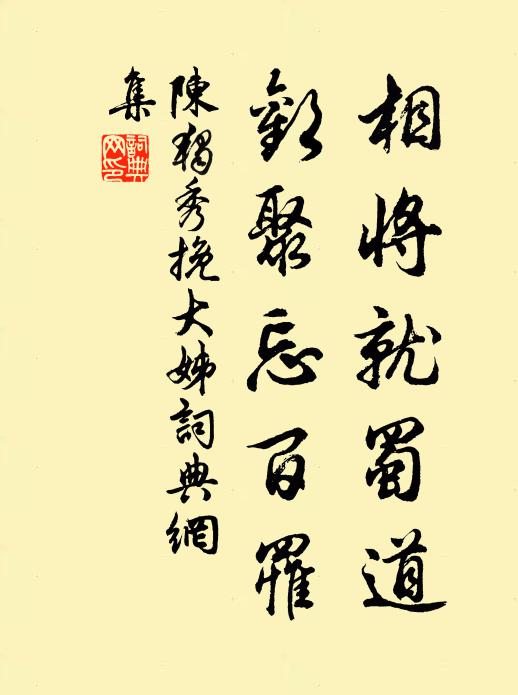 相將就蜀道
歡聚忘百罹
陳獨秀挽大姊詞典網
集
詞典